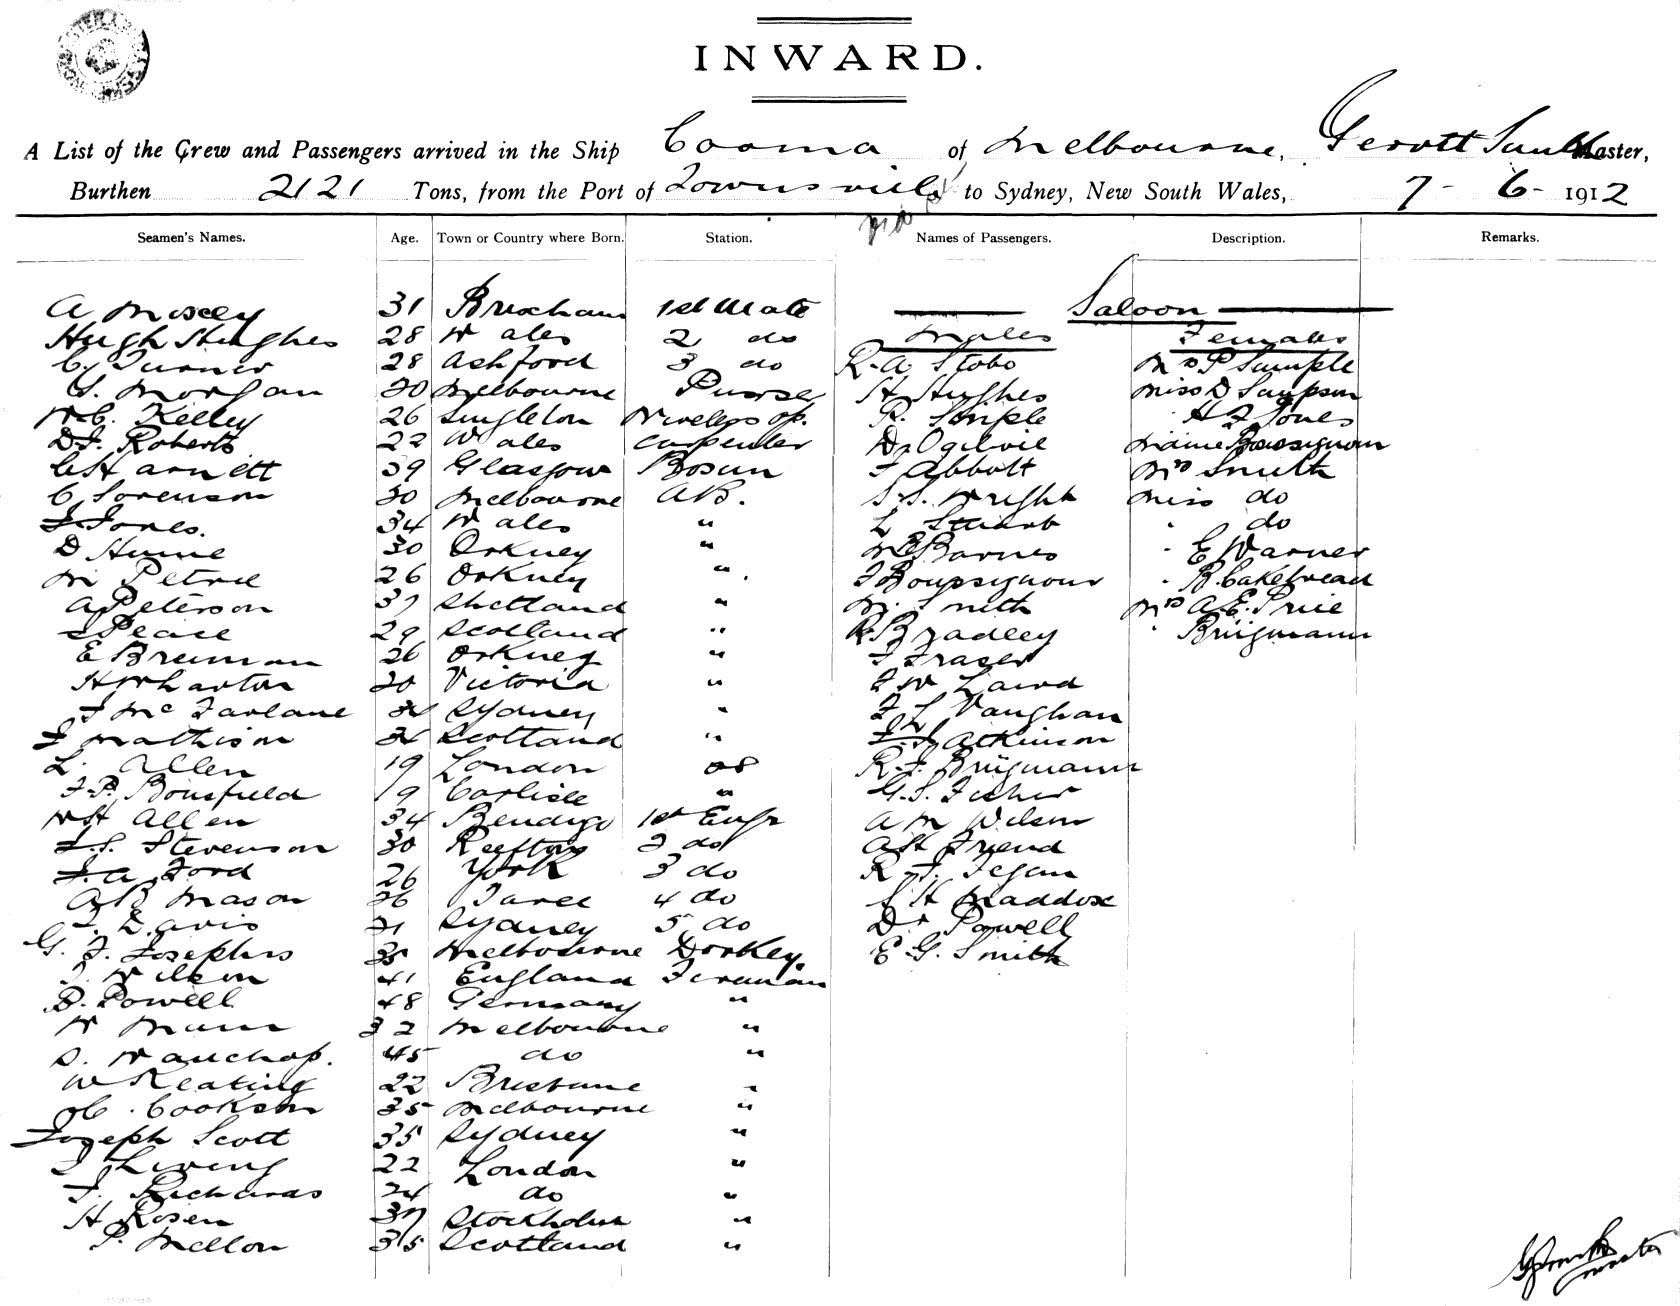 INWARD.
A List of the Crew and Passengers arrived in the Ship Cooma of Melbourne, Master,
Burthen 2121 Tons, from the Port of Townsville to Sydney, New South Wales, 7 - 6 - 1912
Seamen's Names. Age. Town or Country where Born. Station. Names of Passengers. Description. Remarks.
Saloon
A Mosey 31 Brixham 1st Mate
Hugh Hughes 28 Wales 2 do Males Females
C. Turner 28 Ashford 3 do R. A Stobo Mrs P Sample
G. Morgan 30 Melbourne Purser H Hughes Miss D Sampson
W. C. Kelley 26 Singleton Wireless op. R. Sample " H Z Jones
D. J. Roberts 22 Wales Carpenter Dr Ogilvie
C H arnett 39 Glasgow Bosun F Abbott Mrs Smith
C Sorenson 30 Melbourne A.B. S. S. Wright Miss do
J Jones. 34 Wales " L Stuart " do
D Hume 30 Orkney " Barnes " E Warner
M Petrie 26 Orkney " " B. Cakebread
A Peterson 37 Shetland " M. Smith Mrs A. E. Price
Peace 29 Scotland " R. Bradley " Brügmann
E Brennan 26 Orkney " F Fraser
H Wharton 30 Victoria " F W Laird
J McFarlane Sydney " F L Vaughan
J Mathison Scotland " Atkinson
L. Allen 19 London os R. F. Brügmann
J. P. Bousfield 19 Carlisle " G. S. Fisher
W H Allen 34 Bendigo 1st Engr A M Wilson
J. S. Stevenson 30 Reefton 2 do A H Friend
J. A Ford 26 York 3 do R. J. Fegan
A B Mason 26 Taree 4 do S H Maddox
Davis 31 Sydney 5 do Dr Powell
G. J. Josephs 35 Melbourne Donkey. E. G. Smith
J Wilson 41 England Fireman
P. Powell 48 Germany "
W Mann 32 Melbourne "
D. Wauchop. 45 do "
W Keating 22 Brisbane "
C. Cookson 35 Melbourne "
Joseph Scott 35 Sydney "
J Living 22 London "
J. Richards 24 do "
H Rosen 37 Stockholm "
P. Mellon 35 Scotland "
Master